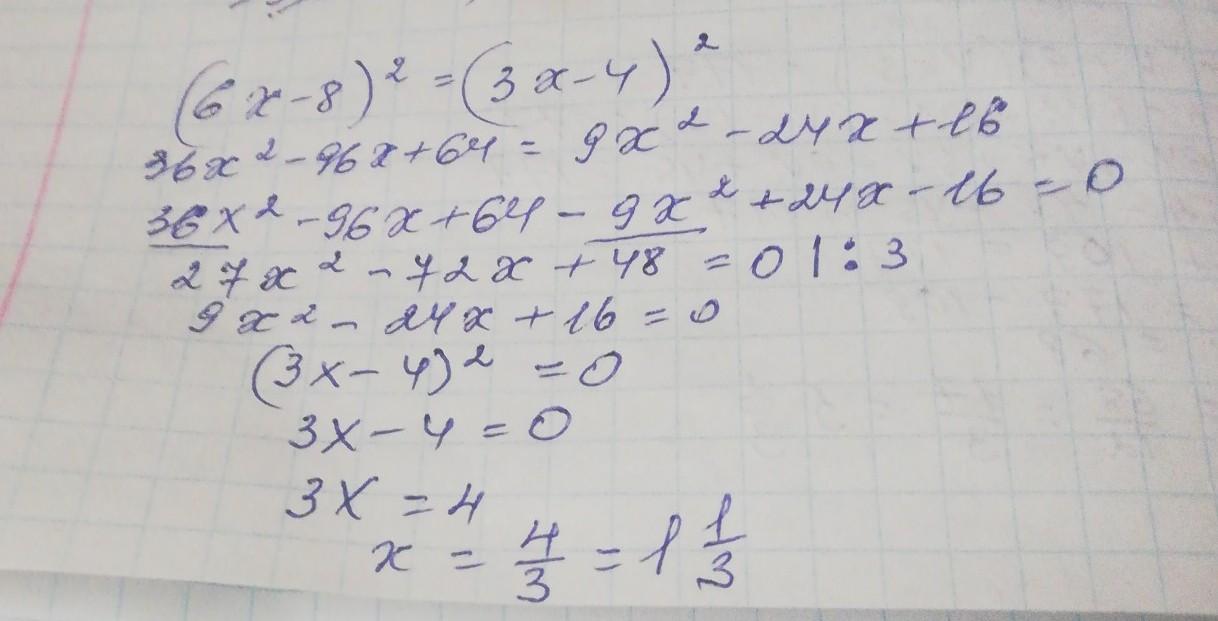 (6x-8)² = (3x-4)²
36x² - 96x + 64 = 9x² - 24x + 16
36x² - 96x + 64 - 9x² + 24x - 16 = 0
27x² - 72x + 48 = 0 | : 3
9x² - 24x + 16 = 0
(3x-4)² = 0
3x - 4 = 0
3x = 4
x = 4/3 = 1 1/3